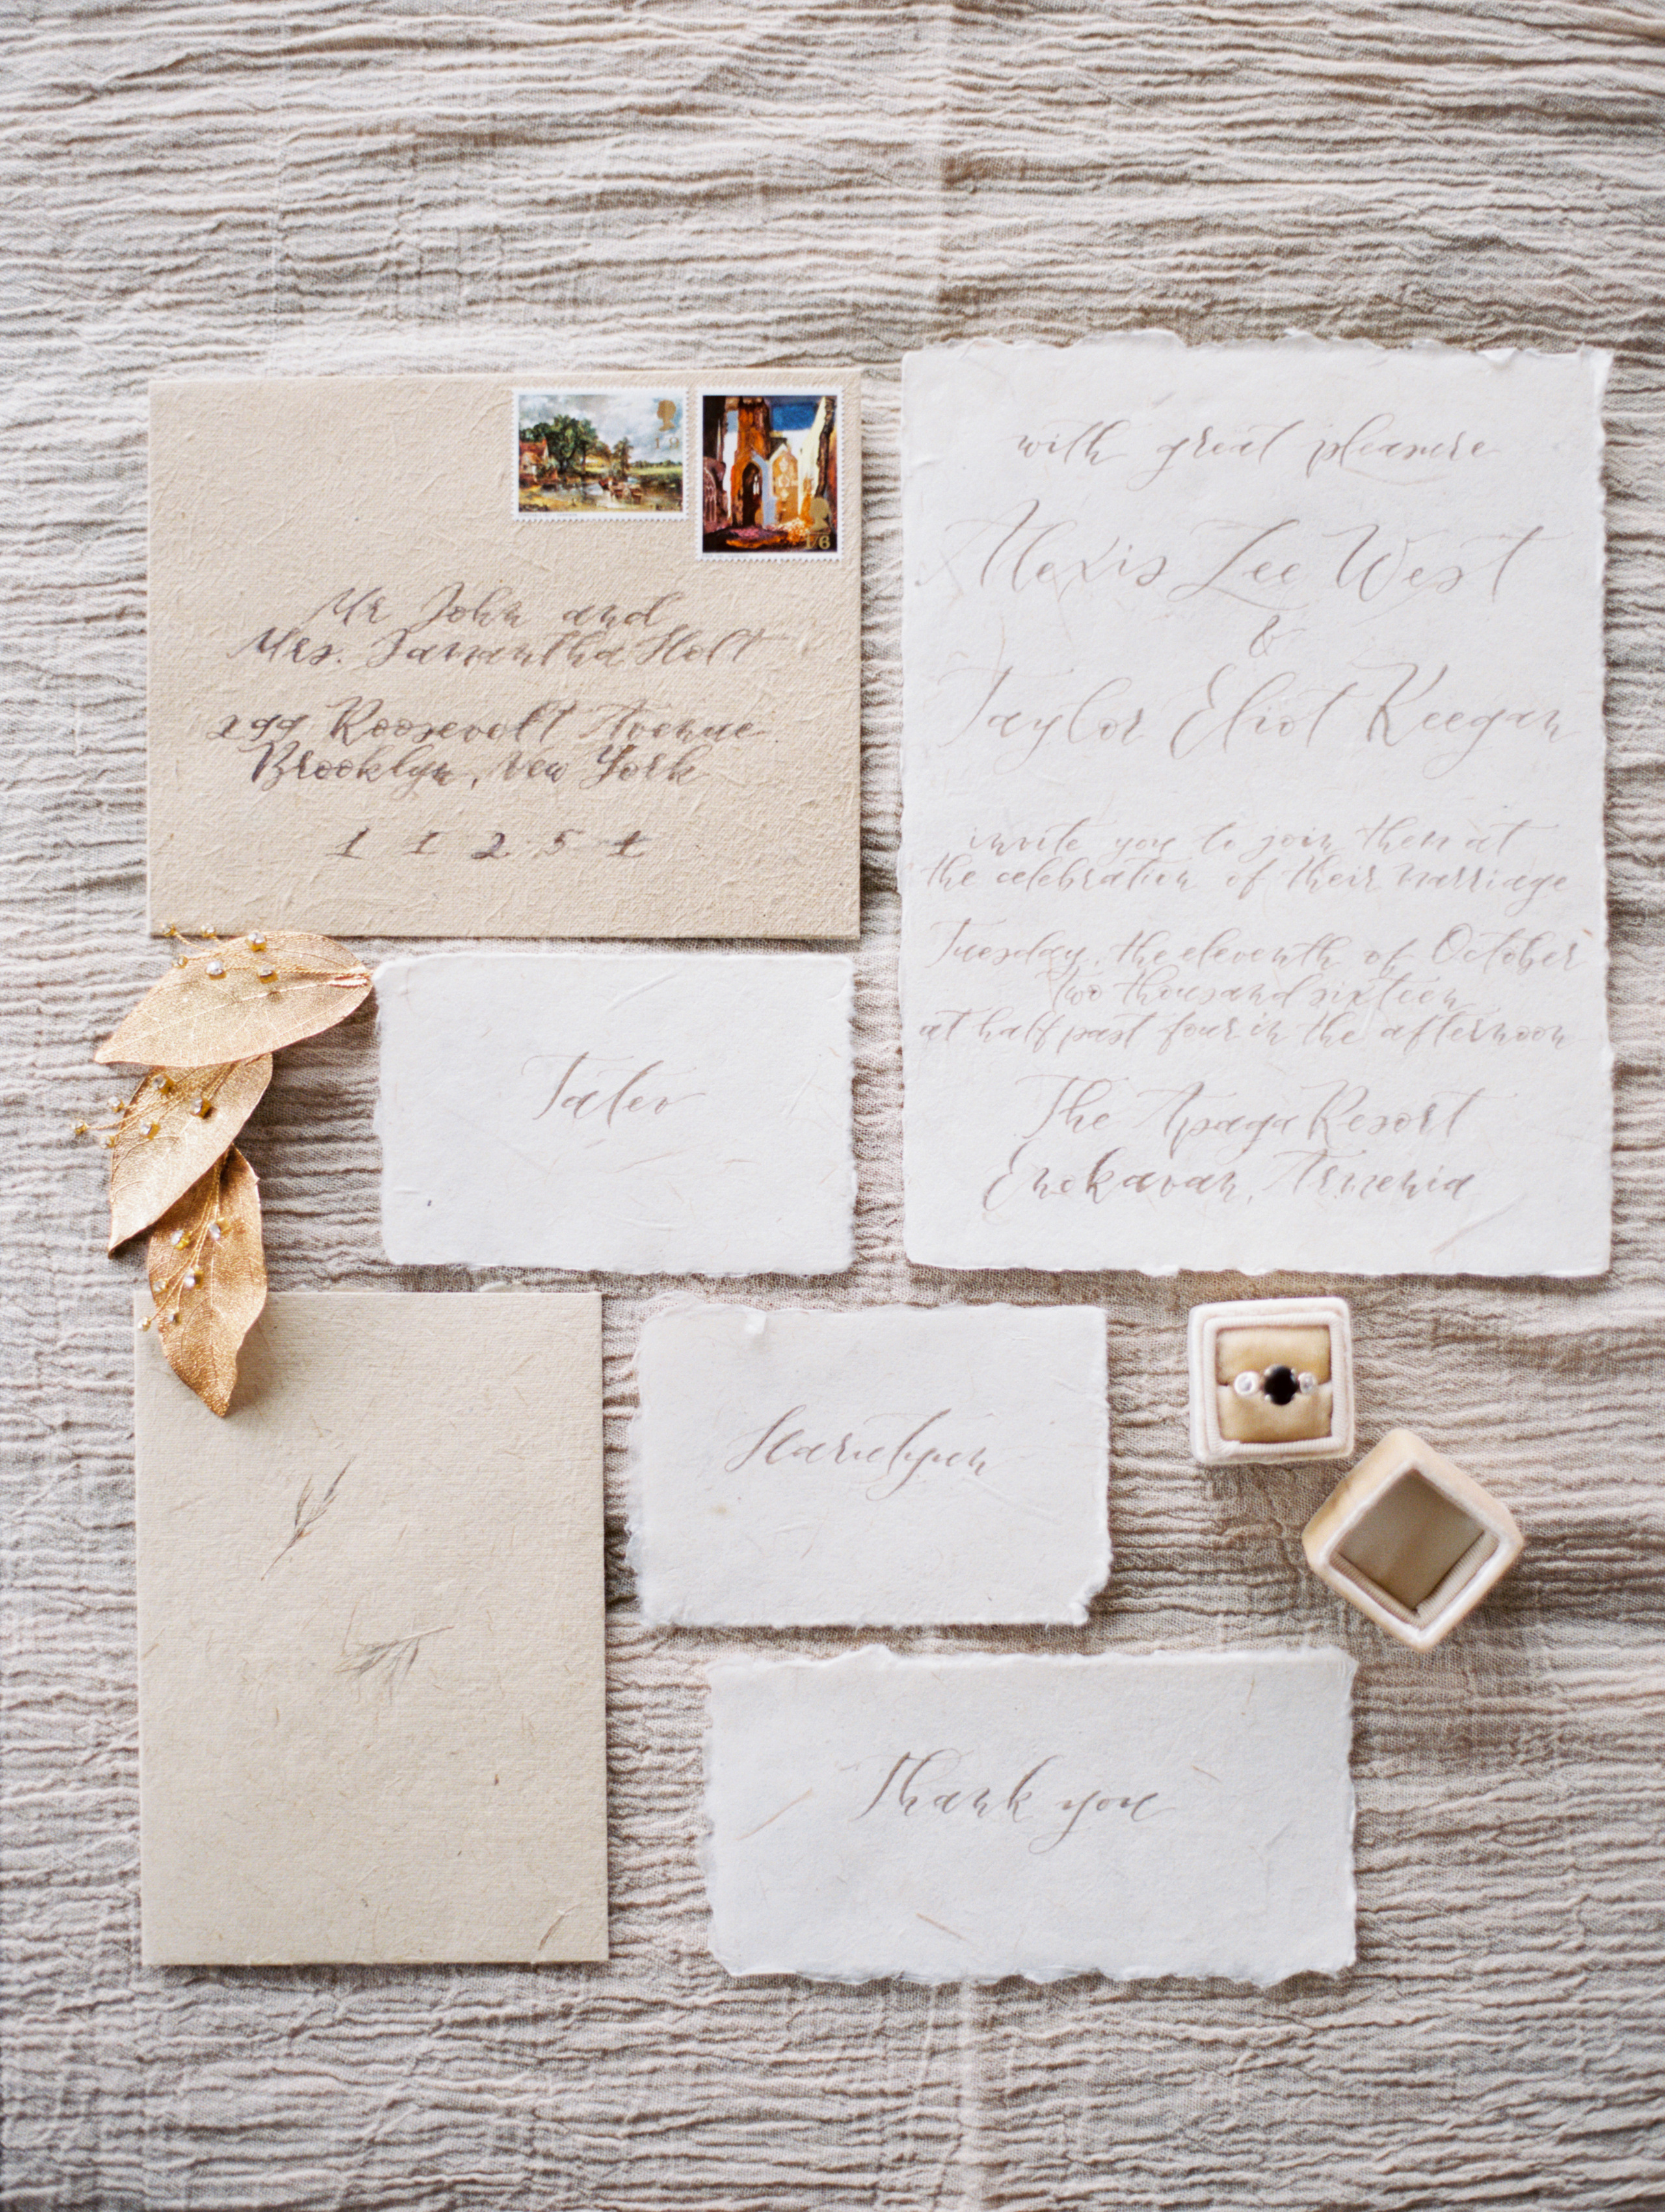 19
1/6
Mr John and
Mrs. Samantha Holt
299 Roosevolt Avenue
Brooklyn, New York
1 1 2 5 4
with great pleasure
Alexis Lee West
&
Taylor Eliot Keegan
invite you to join them at
the celebration of their marriage
Tuesday, the eleventh of October
two thousand sixteen
at half past four in the afternoon
The Apaga Resort
Enokavan, Armenia
Tatev
Harutyun
Thank you